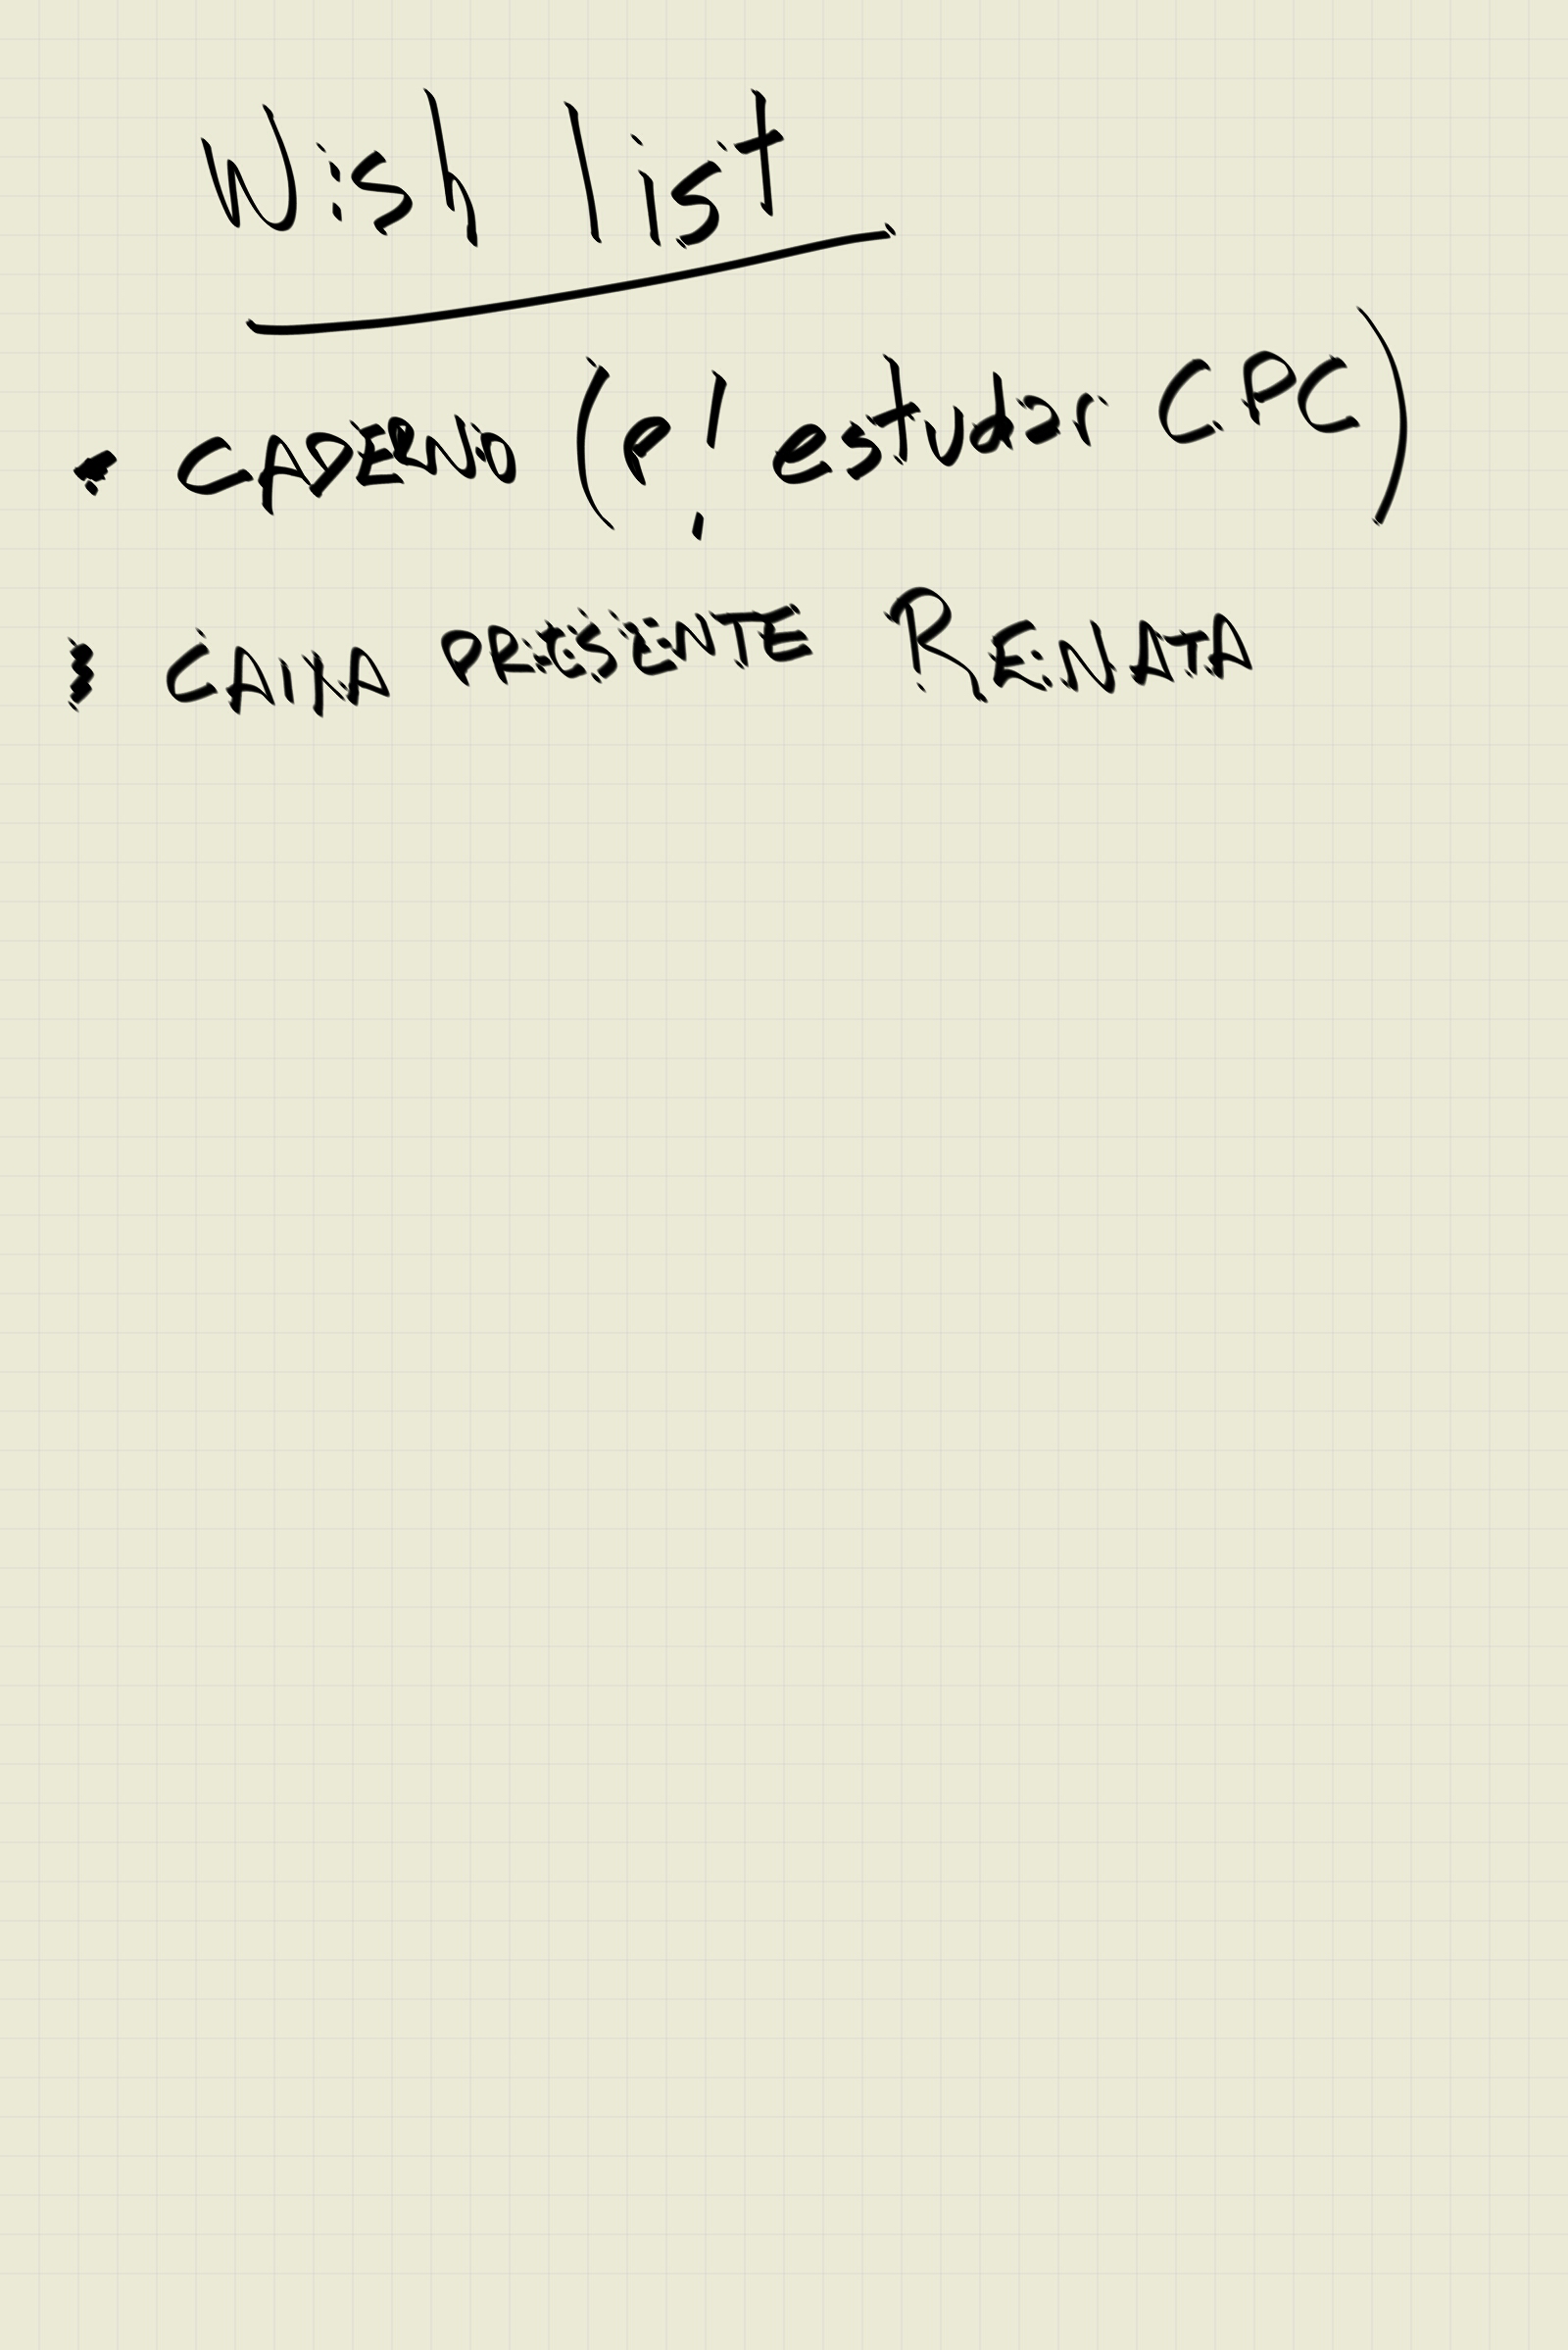 Wish list
• CADERNO (p/ estudar CPC)
• CAIXA PRESENTE RENATA